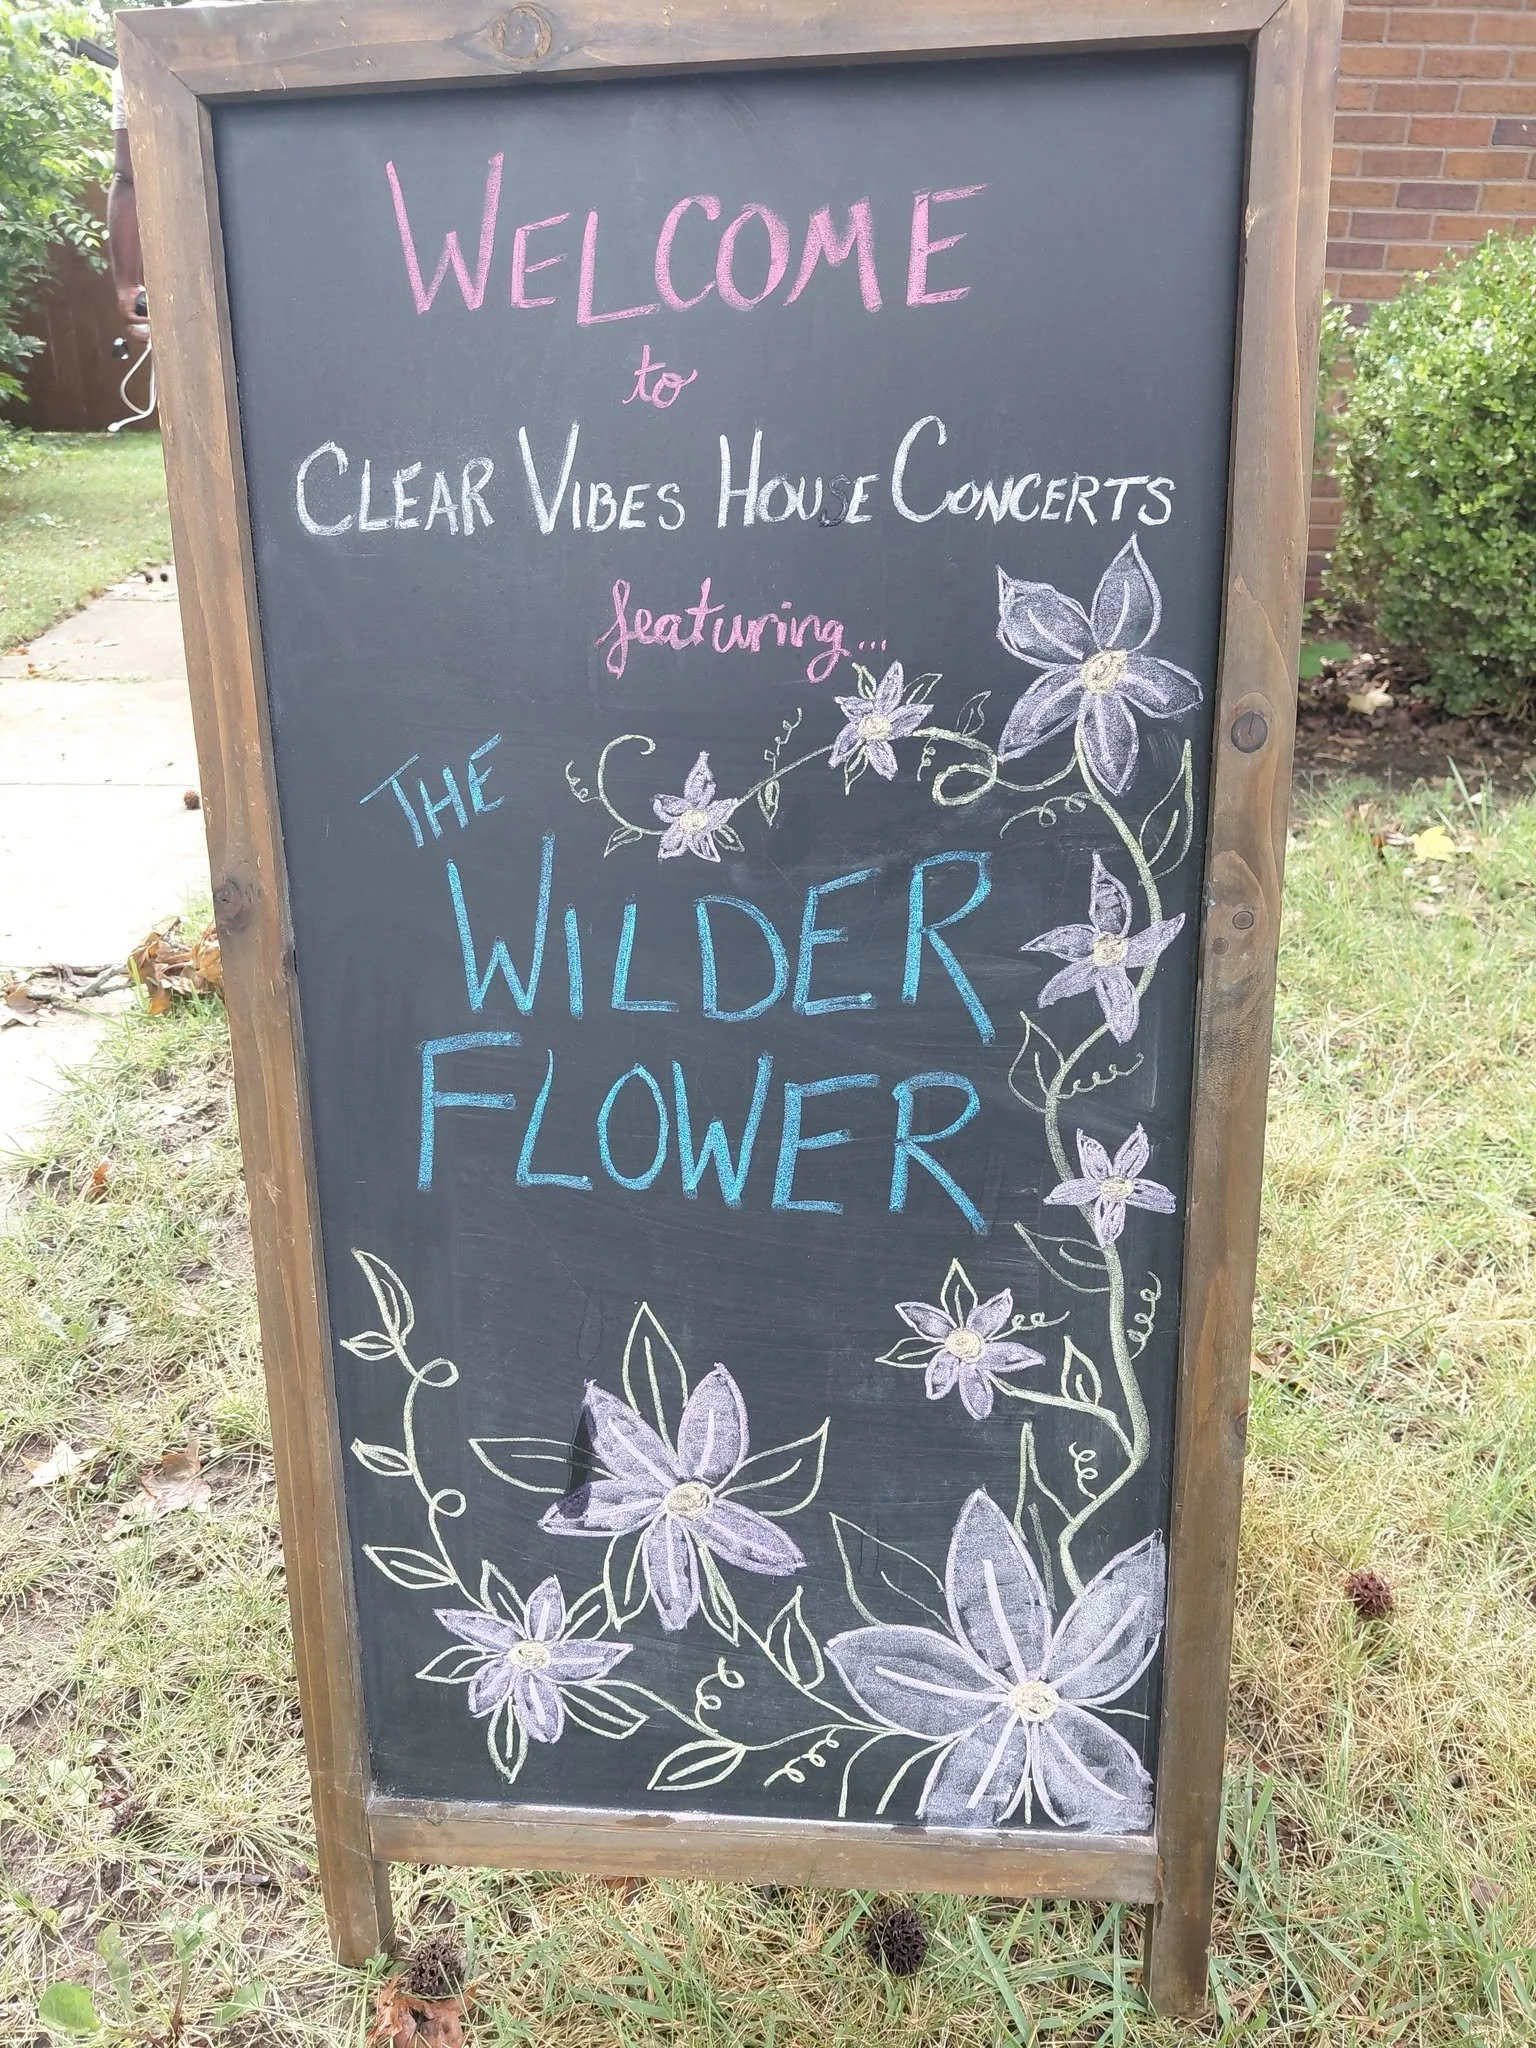 WELCOME
to
CLEAR VIBES HOUSE CONCERTS
featuring...
THE
WILDER
FLOWER